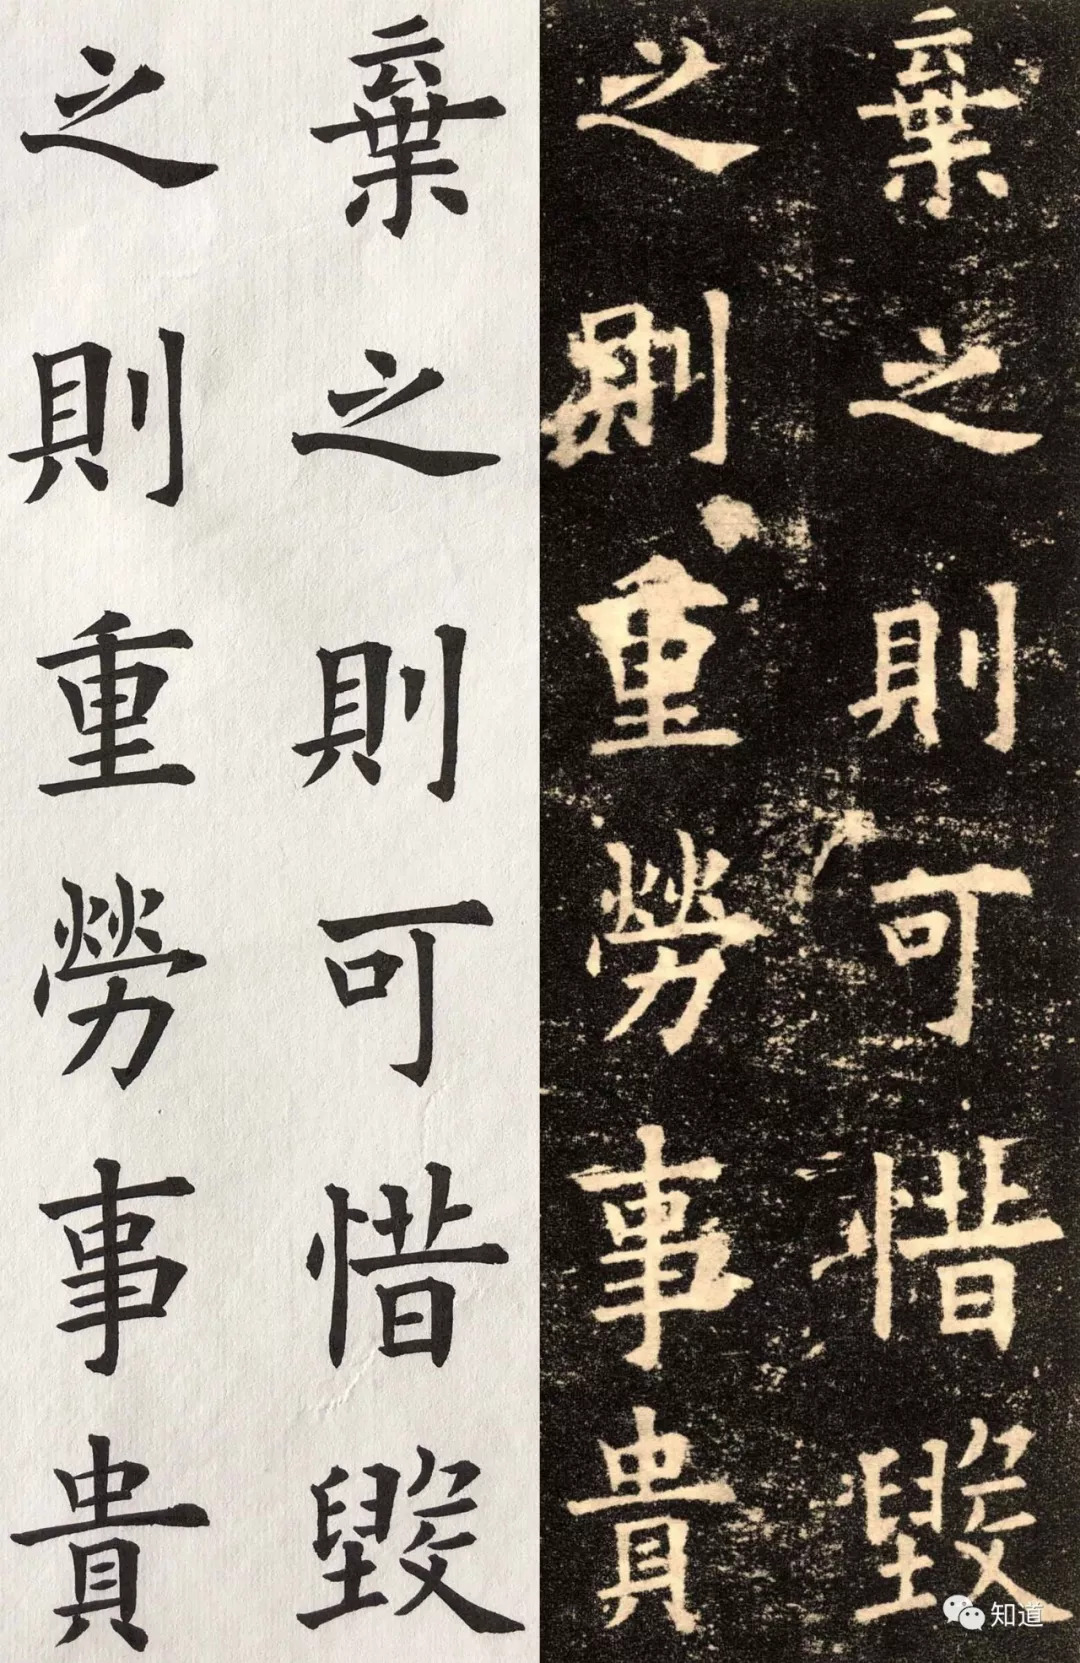 棄之則可惜毀
之則重勞事貴
棄之則可惜毀
之則重勞事貴
知道